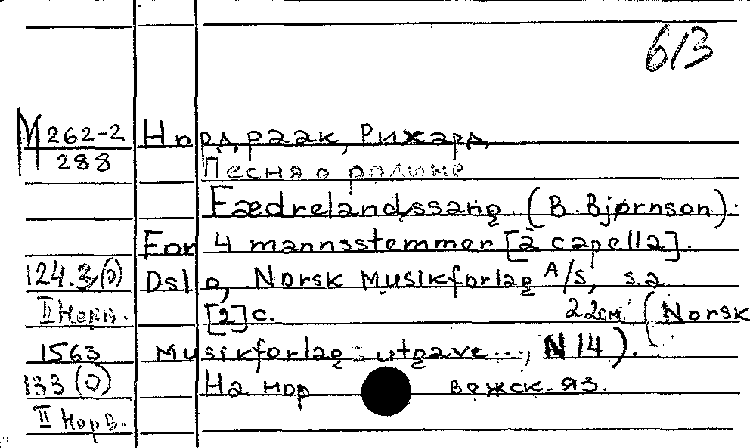 б/3
М 262-2 Нордраак, Рихард
288
Песня о родине
Fædrelandssang (B. Bjørnson).
For 4 mannsstemmer [a capella].
124.3(0) Oslo, Norsk musikforlag A/S, s.a
II Норв. [2] с. 22см (Norsk
1563 musikforlag utgave..., N 14).
133 (0) На норвежск. яз.
II Норв.